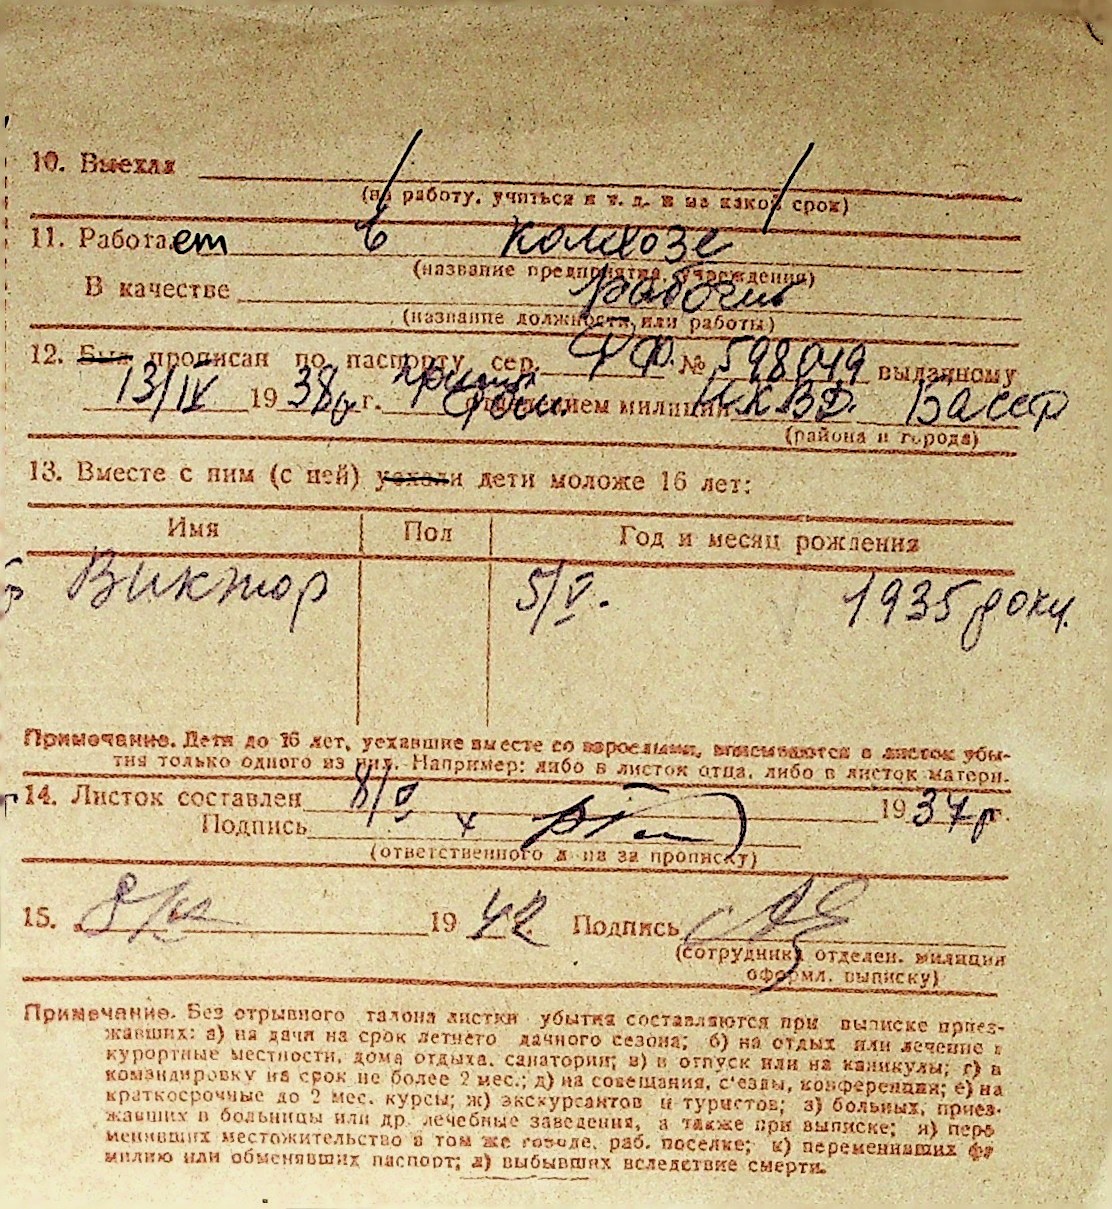 10. Выехал
(на работу, учиться и т. д. и на какой срок)
11. Работает в колхозе
(название предприятия, учреждения)
В качестве рабочий
(название должности или работы)
12. Был прописан по паспорту сер. ФФ. № 598049 выданному
13/IV 1938 г. отделением милиции НКВД. БАССР
(района и города)
13. Вместе с ним (с ней) уехали дети моложе 16 лет:
Имя Пол Год и месяц рождения
Виктор 5/V. 1935
Примечание. Дети до 16 лет, уехавшие вместе со взрослыми, вписываются в листок убы-
тия только одного из них. Например: либо в листок отца, либо в листок матери.
14. Листок составлен 8/V 1937 г.
Подпись
(ответственного л на за прописку)
15. 1942 Подпись
(сотрудника отделен. милиции
оформл. выписку)
Примечание. Без отрывного талона листки убытия составляются при выписке приез-
жавших: а) на дачи на срок летнего дачного сезона; б) на отдых или лечение в
курортные местности, дома отдыха, санатории; в) в отпуск или на каникулы; г) в
командировку на срок не более 2 мес.; д) на совещания, с'езды, конференции; е) на
краткосрочные до 2 мес. курсы; ж) экскурсантов и туристов; з) больных, приез-
жавших в больницы или др. лечебные заведения, а также при выписке; и) пере
менивших местожительство в том же городе, раб. поселке; к) переменивших фа
милию или обменявших паспорт; л) выбывших вследствие смерти.